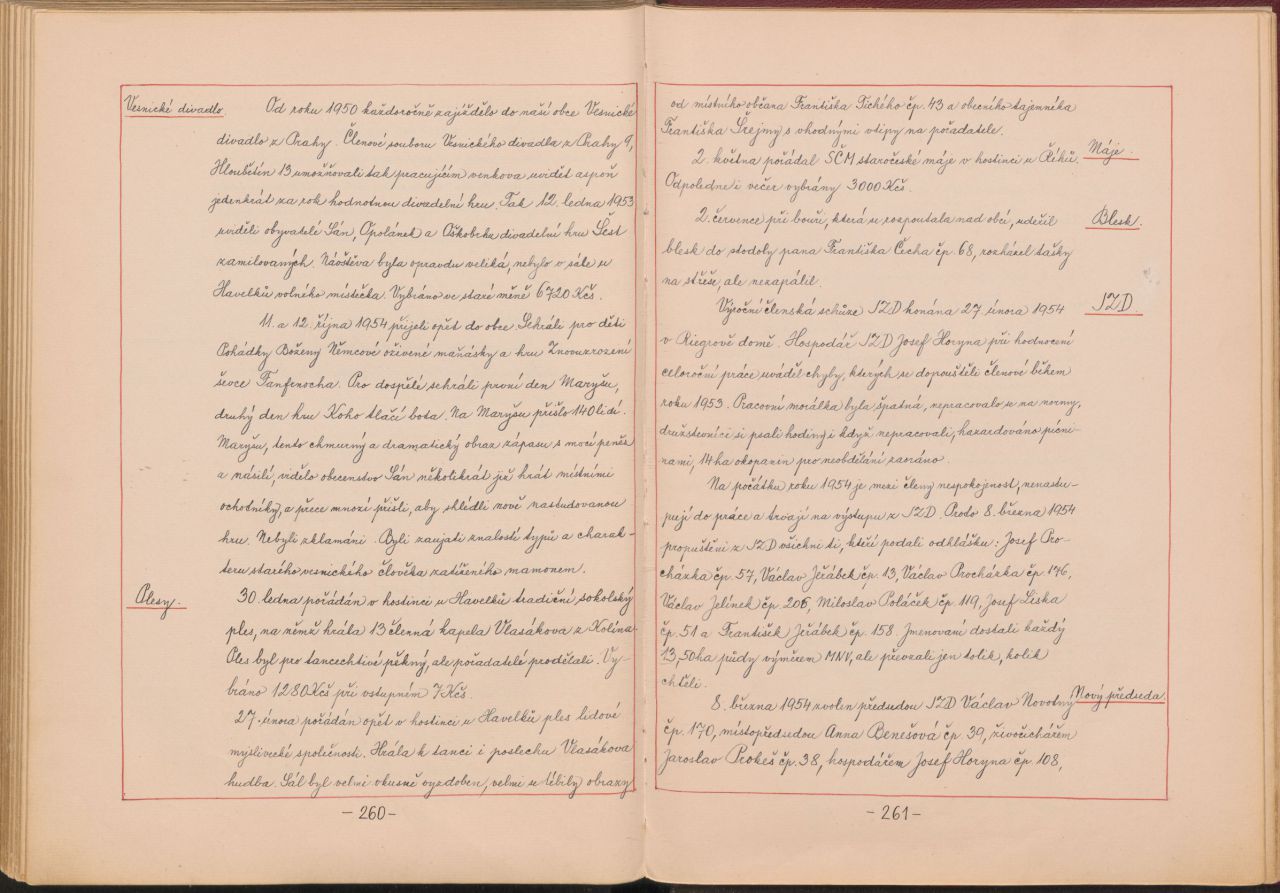 Vesnické divadlo.
Od roku 1950 každoročně zajíždělo do naší obce Vesnické
divadlo z Prahy. Členové souboru Vesnického divadla z Prahy 9,
Hloubětín 13 umožňovali tak pracujícím venkova uvidět aspoň
jedenkrát za rok hodnotnou divadelní hru. Tak 12. ledna 1953
uviděli obyvatelé Sán, Opolánek a Oškobrha divadelní hru Šest
zamilovaných. Návštěva byla opravdu veliká, nebylo v sále u
Havelků volného místečka. Vybráno ve staré měně 6720 Kčs.
11. a 12. října 1954 přijeli opět do obce. Sehráli pro děti
Pohádky Boženy Němcové oživené maňásky a hru Znovuzrození
ševce Tanfenocha. Pro dospělé sehráli první den Maryšu,
druhý den hru Koho tlačí bota. Na Maryšu přišlo 140 lidí.
Maryšu, tento chmurný a dramatický obraz zápasu s mocí peněz
a násilí, vidělo obecenstvo Sán několikrát již hrát místními
ochotníky, a přece mnozí přišli, aby shlédli nově nastudovanou
hru. Nebyli zklamáni. Byli zaujati znalostí typů a charak-
teru starého vesnického člověka zatíženého mamonem.
Plesy.
30. ledna pořádán v hostinci u Havelků tradiční sokolský
ples, na němž hrála 13 členná kapela Vlasákova z Kolína.
Ples byl pro tancechtivé pěkný, ale pořadatelé prodělali. Vy-
bráno 1280 Kčs při vstupném 7 Kčs.
27. února pořádán opět v hostinci u Havelků ples lidové
myslivecké společnosti. Hrála k tanci i poslechu Vlasákova
hudba. Sál byl velmi vkusně vyzdoben, velmi se líbily obrazy
- 260 -
od místního občana Františka Tichého čp. 43 a obecního tajemníka
Františka Šrejmy s vhodnými vtipy na pořadatele.
Máje.
2. května pořádal SČM staročeské máje v hostinci u Říhů.
Odpoledne i večer vybrány 3000 Kčs.
Blesk.
2. července při bouři, která se rozpoutala nad obcí, udeřil
blesk do stodoly pana Františka Čecha čp. 68, rozházel tašky
na střeše, ale nezapálil.
JZD.
Výroční členská schůze JZD konána 27. února 1954
v Riegrově domě. Hospodář JZD Josef Horyna při hodnocení
celoroční práce uváděl chyby, kterých se dopouštěli členové během
roku 1953. Pracovní morálka byla špatná, nepracovalo se na normy,
družstevníci si psali hodiny i když nepracovali, hazardováno pícni-
nami, 14 ha okopanin pro neobdělání zaoráno.
Na počátku roku 1954 je mezi členy nespokojenost, nenastu-
pují do práce a trvají na výstupu z JZD. Proto 8. března 1954
propuštěni z JZD všichni ti, kteří podali odhlášku: Josef Pro-
cházka čp. 57, Václav Jeřábek čp. 13, Václav Procházka čp. 176,
Václav Jelínek čp. 206, Miloslav Poláček čp. 119, Josef Liska
čp. 51 a František Jeřábek čp. 158. Jmenovaní dostali každý
13,50 ha půdy výměrem MNV, ale převzali jen tolik, kolik
chtěli.
Nový předseda.
8. března 1954 zvolen předsedou JZD Václav Novotný
čp. 170, místopředsedou Anna Benešová čp. 39, živočichářem
Jaroslav Prokeš čp. 38, hospodářem Josef Horyna čp. 108,
- 261 -